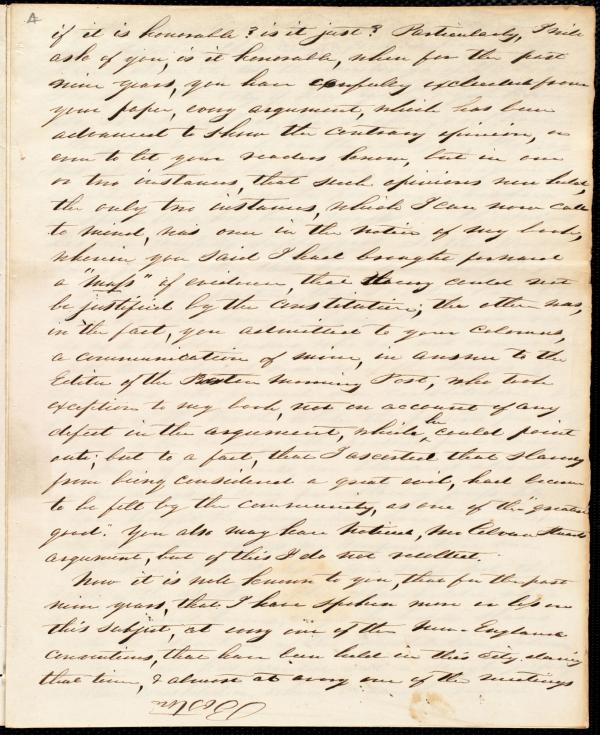 4
if it is honorable? is it just? Particularly, I will
ask of you, is it honorable, when for the past
nine years, you have carefully excluded from
your paper, every argument, which has been
advanced to show the contrary opinion, or
even to let your readers know, but in one
or two instances, that such opinions were held,
the only two instances, which I can now call
to mind, was one in the notice of my book,
wherein you said I had brought forward
a "mass" of evidence, that slavery could not
be justified by the constitution; the other was,
in the fact, you admitted to your columns,
a communication of mine, in answer to the
Editor of the Boston Morning Post, who took
exception to my book, not on account of any
defect in the argument, which he could point
out; but to a fact, that I asserted that slavery
from being considered a great evil, had become
to be felt by the community, as one of the "greatest
good". You also may have noticed, Mr Alvan Stewarts
argument, but of this I do not recollect.
Now it is well known to you, that for the past
nine years, that I have spoken more or less on
this subject, at every one of the New-England
conventions, that have been held in this city during
that time, & almost at every one of the meetings
Boston